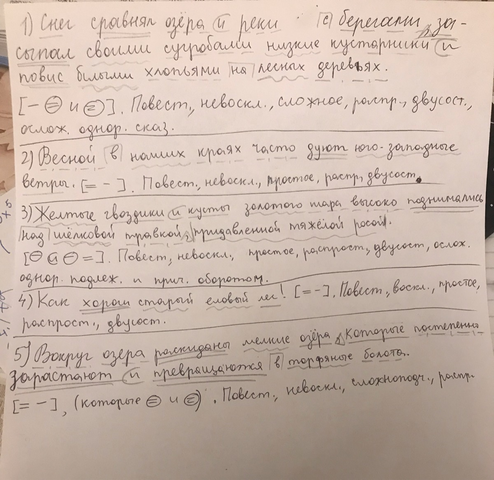 1) Снег сравнял озёра и реки с берегами, за-
сыпал своими сугробами низкие кустарники и
повис белыми хлопьями на лесных деревьях.
[- ⊖ и ⊜]. Повест., невоскл., сложное, распр., двусост.,
ослож. однор. сказ.
2) Весной в наших краях часто дуют юго-западные
ветры. [= -]. Повест., невоскл., простое, распр., двусост.
3) Желтые гвоздики и кусты золотого жара высоко поднимались
над шёлковой травкой, придавленной тяжёлой росой.
[⊖ и ⊖ =]. Повест., невоскл., простое, распрост., двусост., ослож.
однор. подлеж. и прич. оборотом.
4) Как хорош старый еловый лес! [= -]. Повест., воскл., простое,
распрост., двусост.
5) Вокруг озера раскиданы мелкие озёра, которые постепенно
зарастают и превращаются в торфяные болота.
[= -], (которые ⊜ и ⊜). Повест., невоскл., сложноподч., распр.